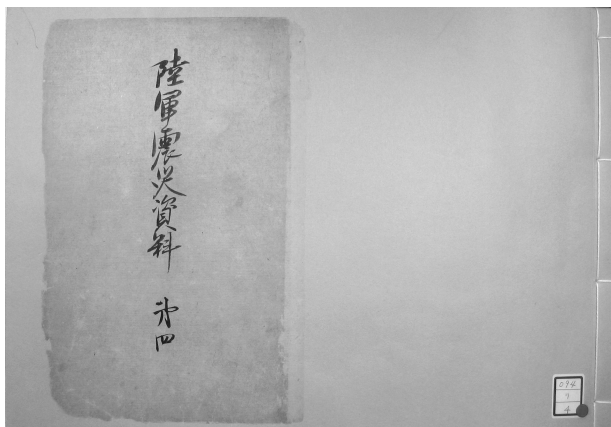 陸軍震災資料 第四
094
7
4